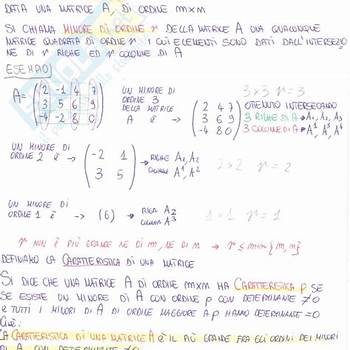 DATA UNA MATRICE A, DI ORDINE m×m
SI CHIAMA MINORE DI ORDINE r DELLA MATRICE A UNA QUALUNQUE
MATRICE QUADRATA DI ORDINE r I CUI ELEMENTI SONO DATI DALL'INTERSEZIO
NE DI r RIGHE ED r COLONNE DI A
ESEMPIO
A = (2 -1 4 7
3 5 6 9
-4 -2 8 0)
UN MINORE DI
ORDINE 3
DELLA MATRICE
A È →
(2 4 7
3 6 9
-4 8 0)
3×3 r=3
OTTENUTO INTERSECANDO
3 RIGHE DI A → A1, A2, A3
3 COLONNE DI A → A1, A3, A4
UN MINORE DI
ORDINE 2 È →
(-2 1
3 5)
→ RIGHE A1, A2
COLONNE A1, A2
2×2 r=2
UN MINORE DI
ORDINE 1 È → (6) → RIGA A2
COLONNA A3
1×1 r=1
r NON È PIÙ GRANDE NÉ DI m, NÉ DI n → r ≤ min{m, n}
DEFINIAMO LA CARATTERISTICA DI UNA MATRICE
SI DICE CHE UNA MATRICE A DI ORDINE m×m HA CARATTERISTICA p SE
SE ESISTE UN MINORE DI A CON ORDINE p CON DETERMINANTE ≠0
E TUTTI I MINORI DI A DI ORDINE MAGGIORE A p HANNO DETERMINANTE =0
CIOÈ:
LA CARATTERISTICA DI UNA MATRICE A È IL PIÙ GRANDE FRA GLI ORDINI DEI MINORI
DI A CON DETERMINANTE ≠0